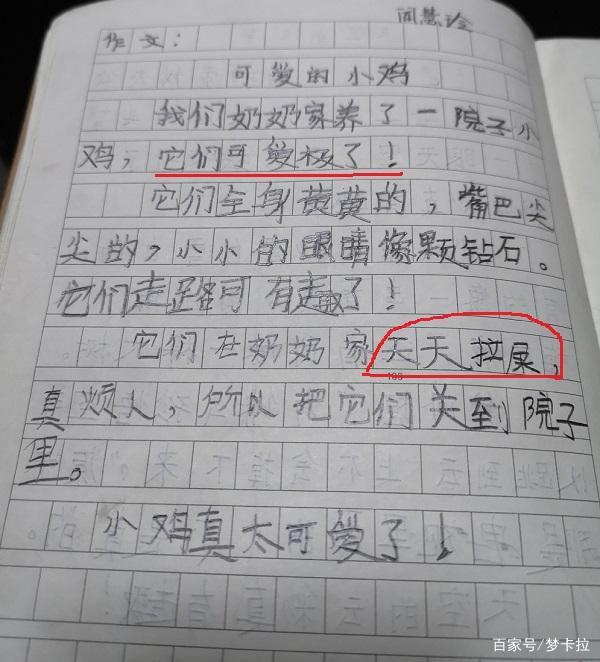 闻慧玲
作文：
可爱的小鸡
我们奶奶家养了一院子小
鸡，它们可爱极了！
它们全身黄黄的，嘴巴尖
尖的，小小的眼睛像颗钻石。
它们走路可有趣了！
它们在奶奶家天天拉屎，
真烦人，所以把它们关到院子
里。
小鸡真太可爱了！
百家号/梦卡拉